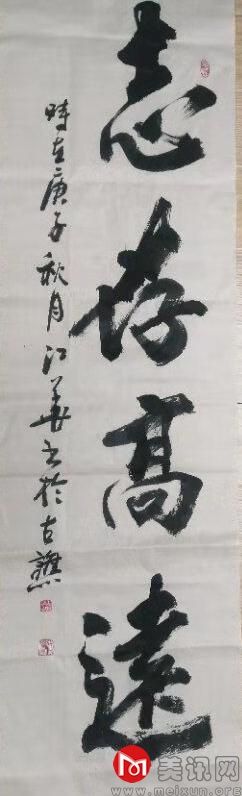 志存高遠
時在庚子秋月江華書於古譙
美讯网
www.meixun.org